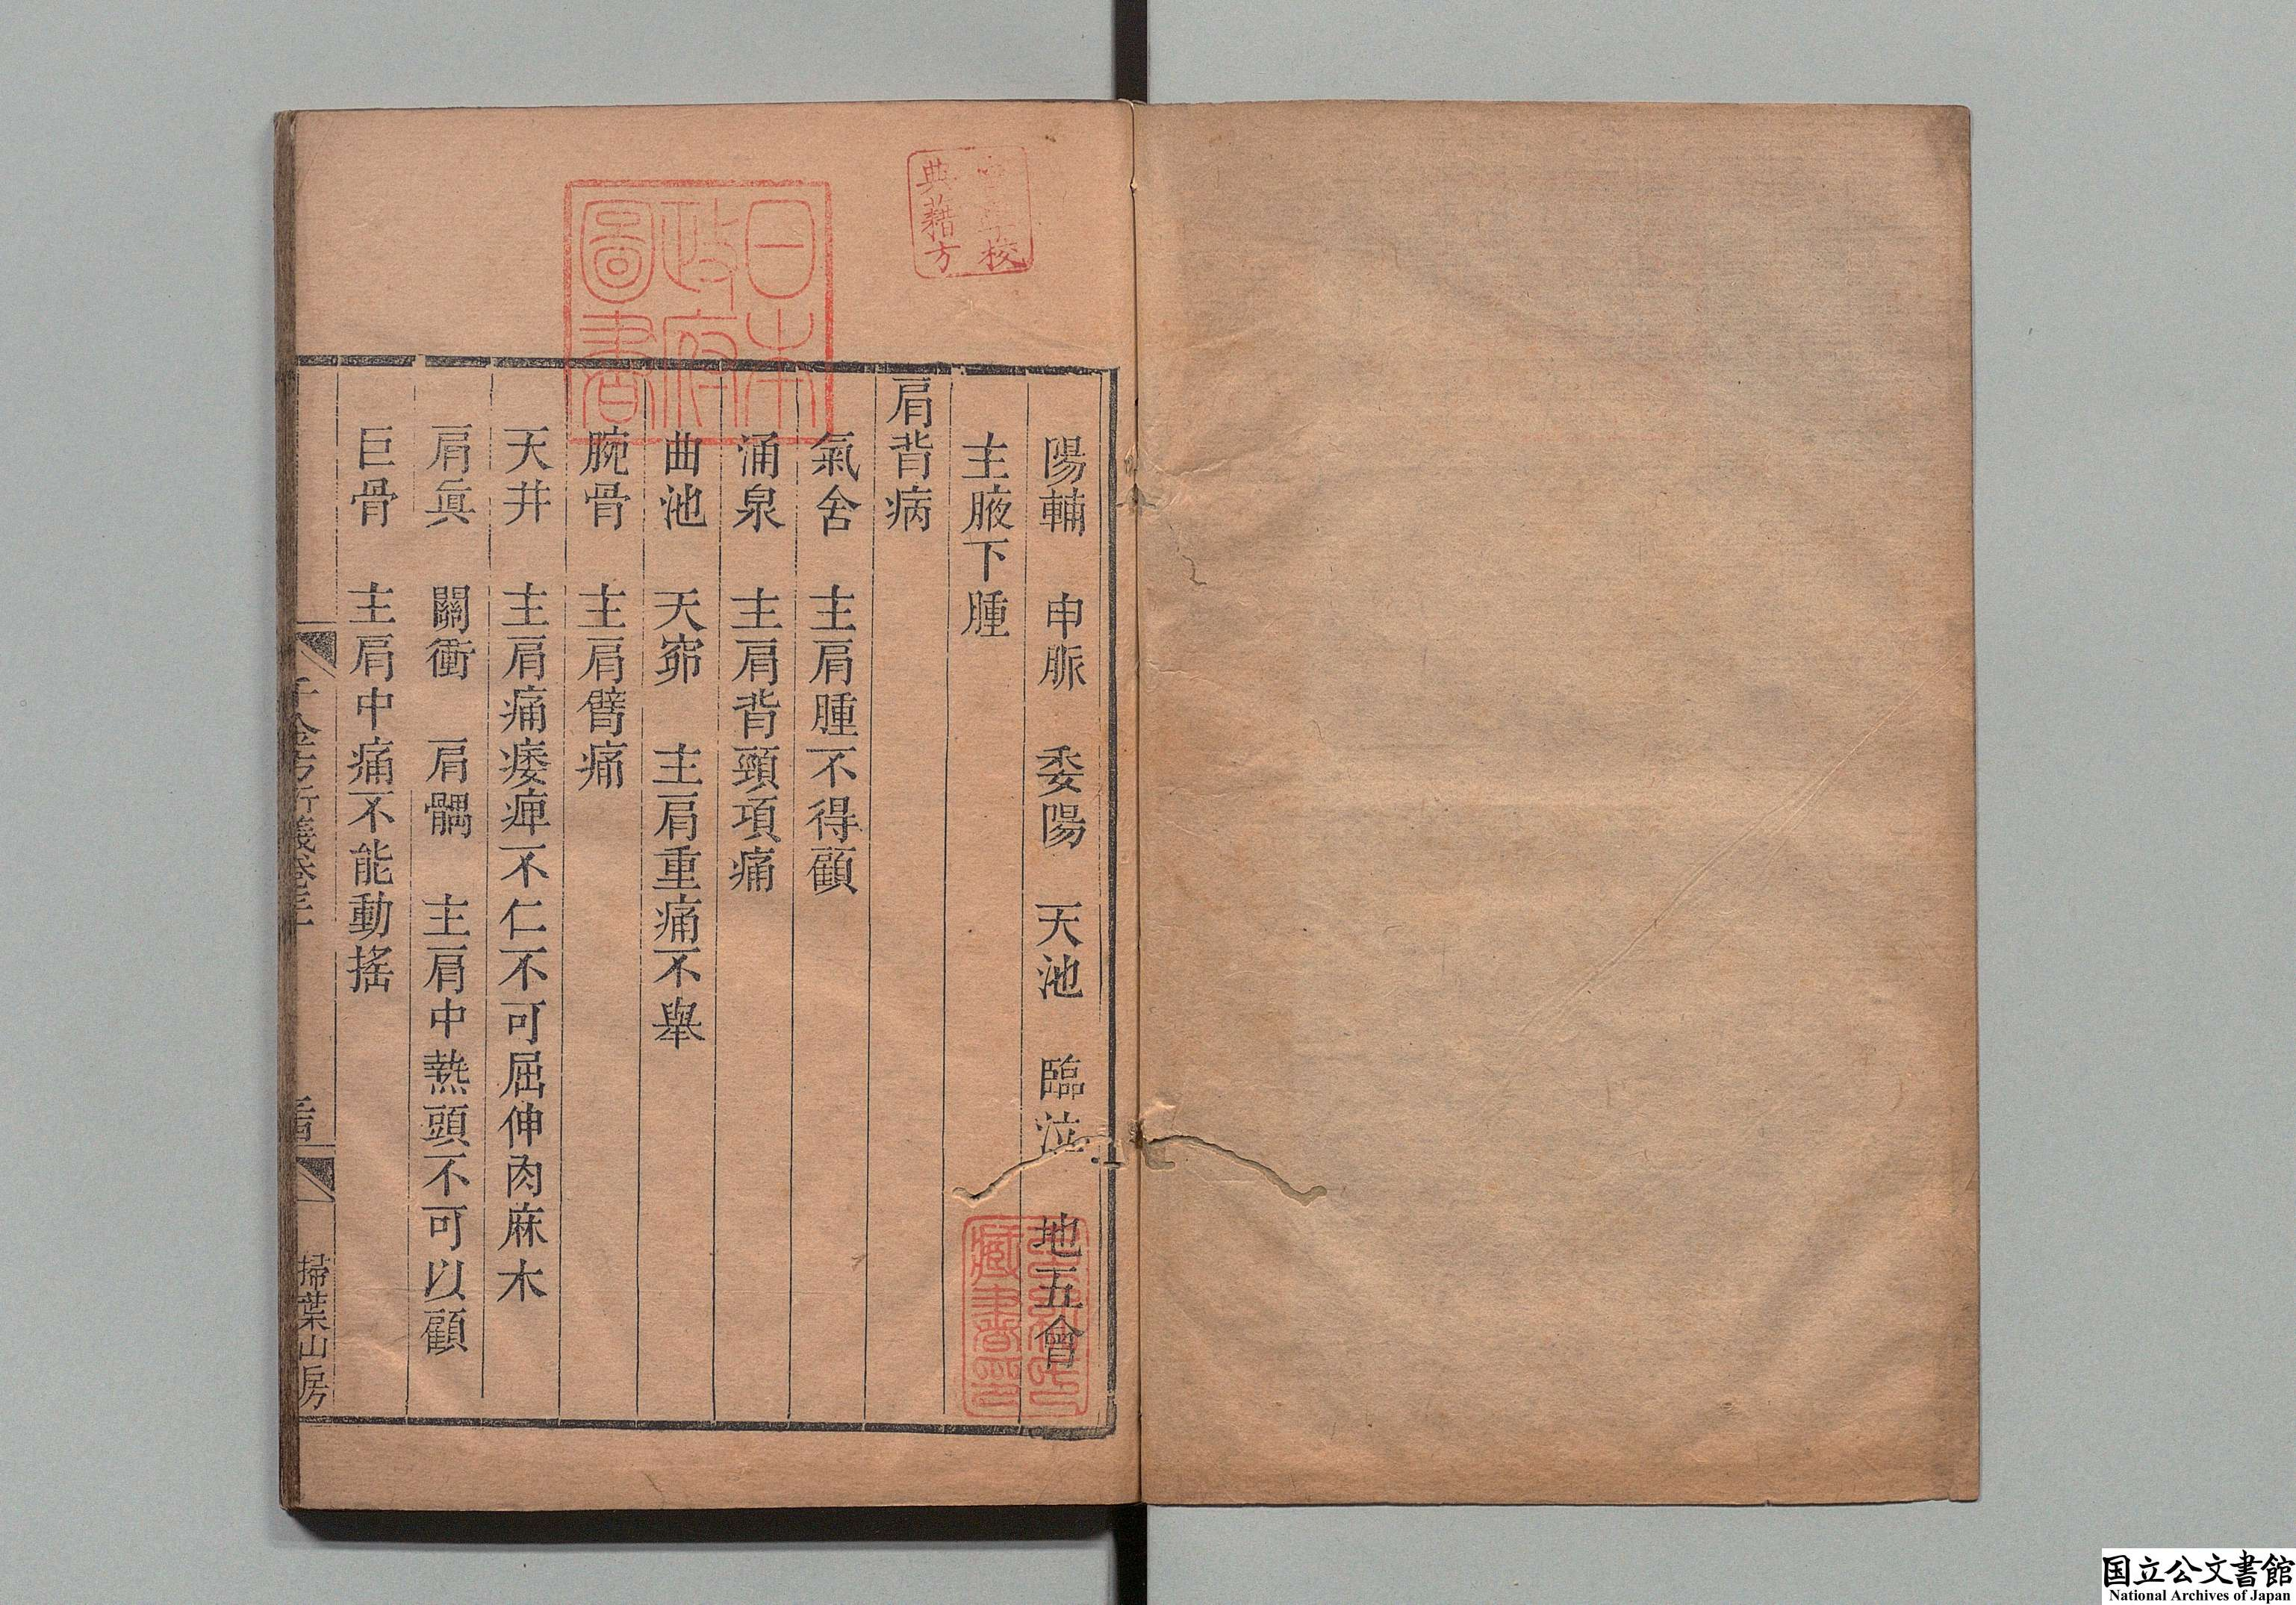 陽輔　申脈　委陽　天池　臨泣　地五會
主腋下腫
肩背病
氣舍　主肩腫不得顧
涌泉　主肩背頸項痛
曲池　天窌　主肩重痛不舉
腕骨　主肩臂痛
天井　主肩痛痿痺不仁不可屈伸肉麻木
肩貞　關衝　肩髃　主肩中熱頭不可以顧
巨骨　主肩中痛不能動搖
千金方衍義卷三十
掃葉山房
日本
政府
圖書
校
典藉方
藏書
国立公文書館
National Archives of Japan